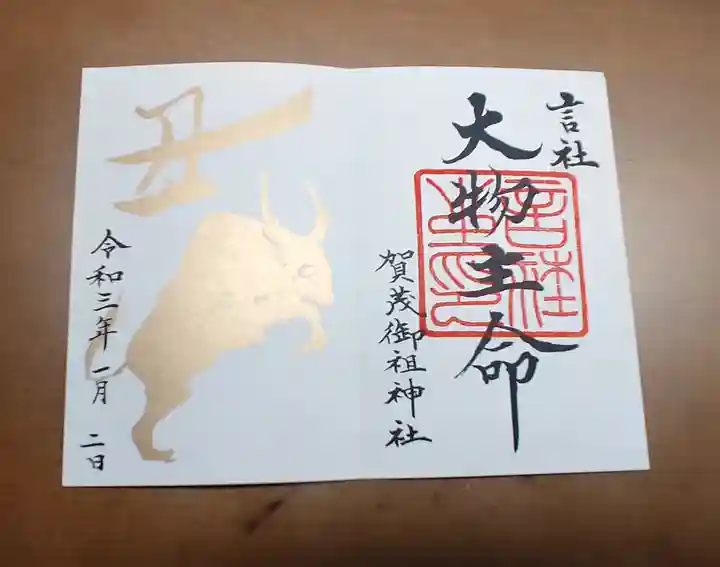 言社
大物主命
賀茂御祖神社
丑
令和三年一月二日